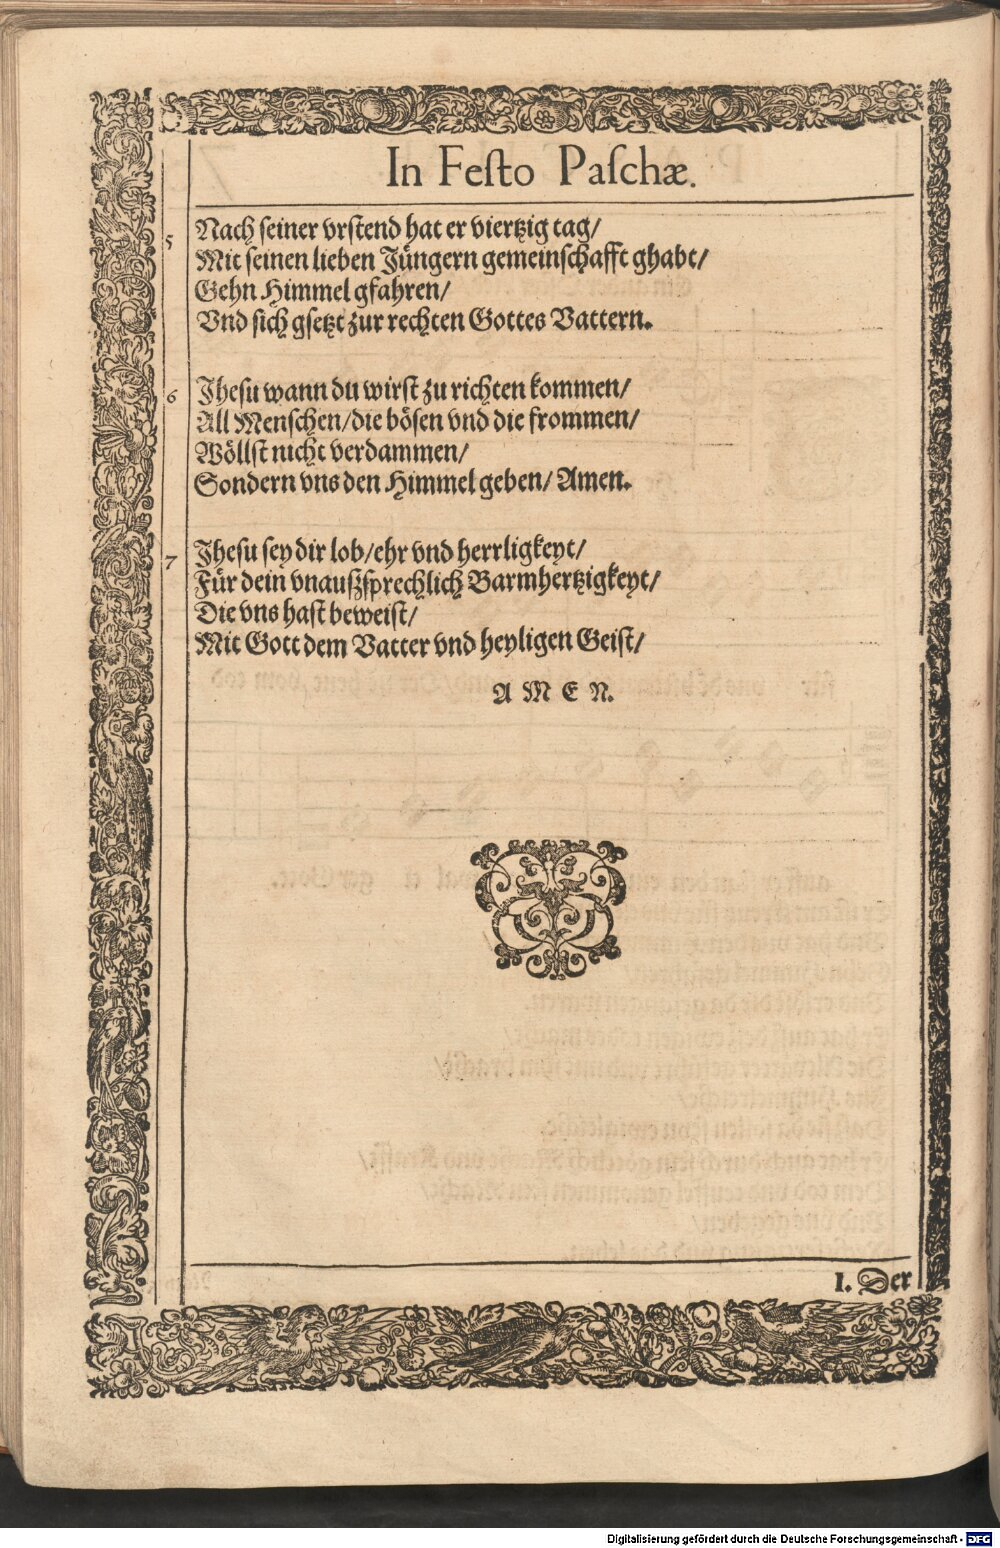 In Feſto Paſchæ.
5 Nach ſeiner vrſtend hat er viertzig tag/
Mit ſeinen lieben Jüngern gemeinſchafft ghabt/
Gehn Himmel gfahren/
Vnd ſich gſetzt zur rechten Gottes Vattern.
6 Jheſu wann du wirſt zu richten kommen/
All Menſchen/die böſen vnd die frommen/
Wöllſt nicht verdammen/
Sondern vns den Himmel geben/ Amen.
7 Jheſu ſey dir lob/ehr vnd herrligkeyt/
Für dein vnauſzſprechlich Barmhertzigkeyt/
Die vns haſt beweiſt/
Mit Gott dem Vatter vnd heyligen Geiſt/
A M E N.
I. Der
Digitalisierung gefördert durch die Deutsche Forschungsgemeinschaft - DFG